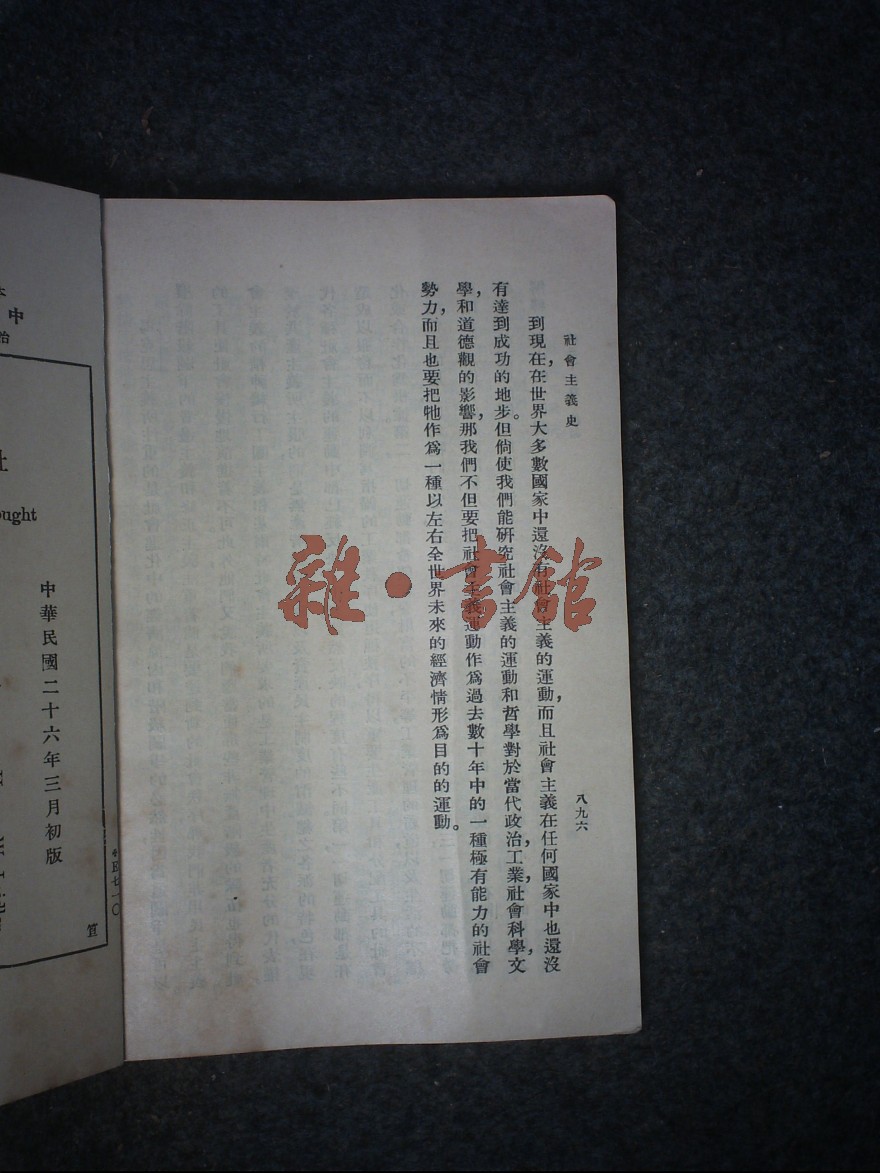 社會主義史
八九六
到現在，在世界大多數國家中還沒有社會主義的運動，而且社會主義在任何國家中也還沒
有達到成功的地步。但倘使我們能研究社會主義的運動和哲學對於當代政治，工業，社會科學，文
學，和道德觀的影響，那我們不但要把社會主義運動作爲過去數十年中的一種極有能力的社會
勢力，而且也要把牠作爲一種以左右全世界未來的經濟情形爲目的的運動。
雜·書館
中
ought
中華民國二十六年三月初版